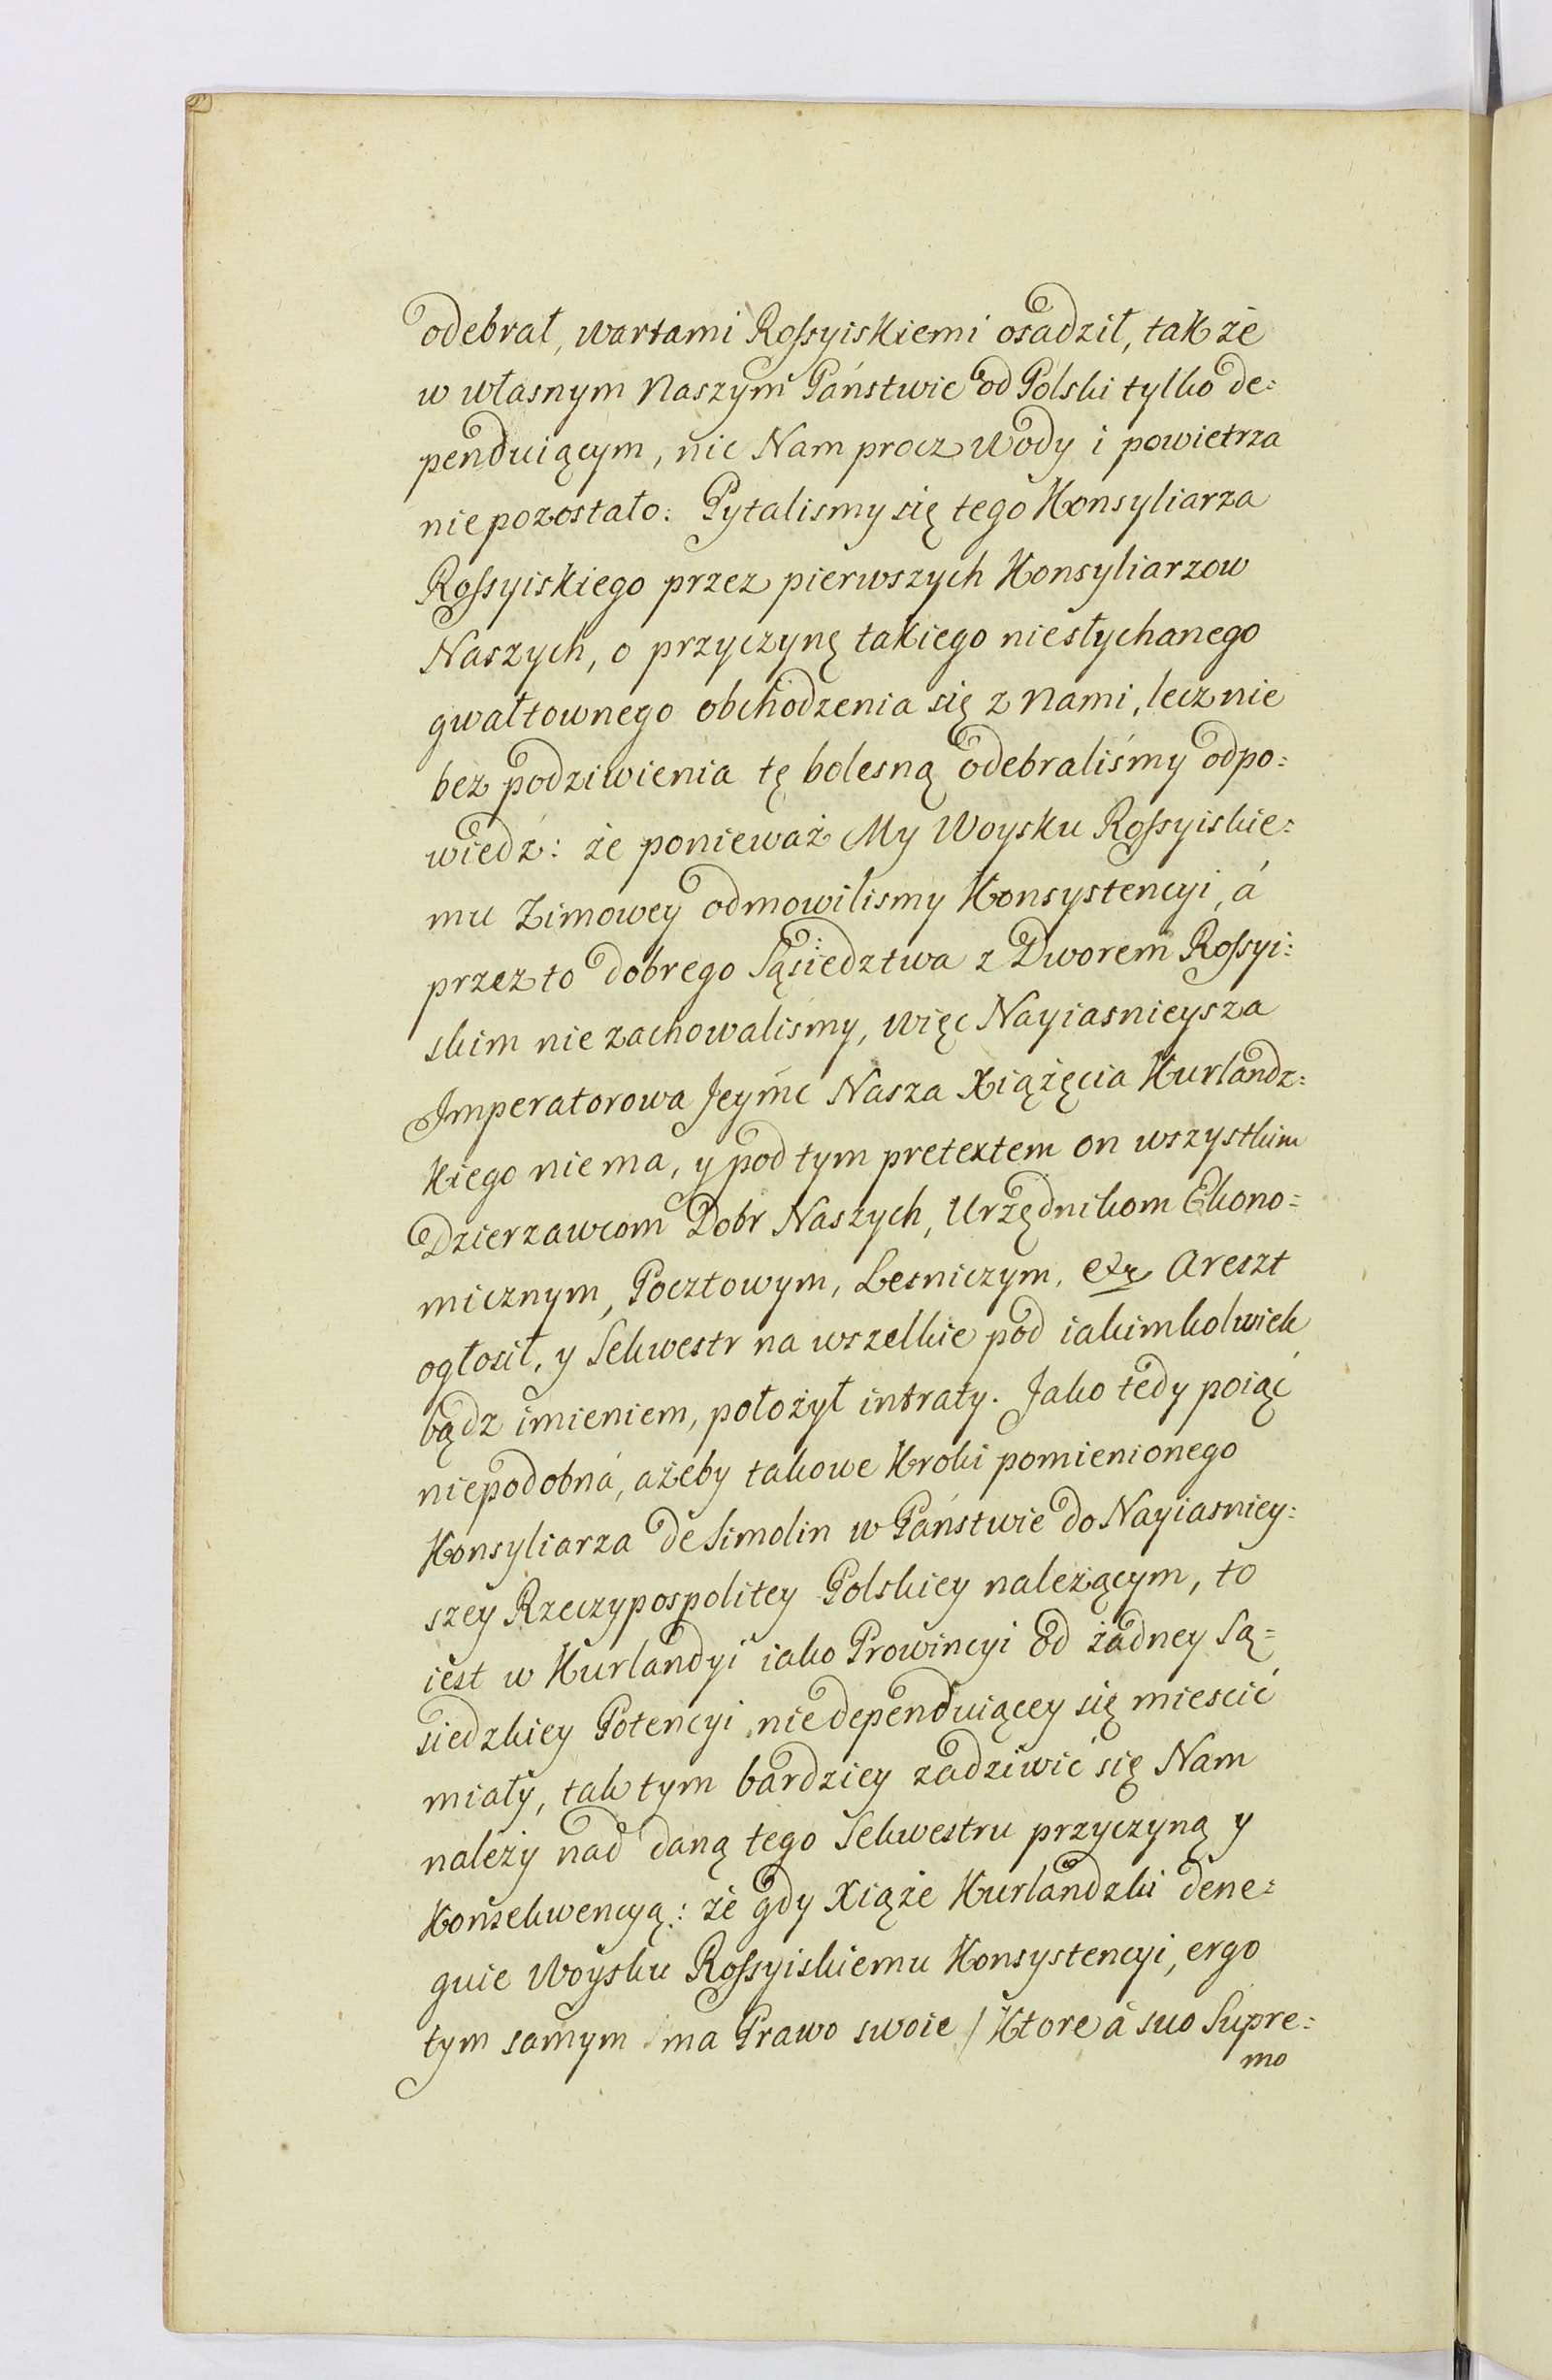 odebrał, wartami Rossyiskiemi osadził, tak że
w własnym Naszym Państwie od Polski tylko de=
penduiącym, nic Nam procz wody i powietrza
nie pozostało. Pytalismy się tego Konsyliarza
Rossyiskiego przez pierwszych Konsyliarzow
Naszych, o przyczynę takiego niesłychanego
gwałtownego obchodzenia się z Nami, lecz nie
bez podziwienia tę bolesną odebraliśmy odpo=
wiedź: że ponieważ My Woysku Rossyiskie=
mu Zimowey odmowilismy Konsystencyi, á
przez to dobrego Sąsiedztwa z Dworem Rossyi=
skim nie zachowaliśmy, więc Nayiasnieysza
Imperatorowa Jeymć Nasza Xiążęcia Kurlandz=
kiego nie ma, y pod tym pretextem on wszystkim
Dzierzawcom Dobr Naszych, Urzędnikom Ekono=
micznym, Pocztowym, Lesniczym, etc Areszt
ogłosił, y Sekwestr na wszelkie pod iakimkolwiek
bądz imieniem, położył intraty. Jako tedy poiąć
niepodobná, ażeby takowe Kroki pomienionego
Konsyliarza de Simolin w Państwie do Nayiasniey=
szey Rzeczypospolitey Polskiey należącym, to
iest w Kurlandyi iako Prowincyi od żadney Są=
siedzkiey Potencyi niedependuiącey się miescić
miały, tak tym bardziey zadziwić się Nam
należy nad daną tego Sekwestru przyczyną y
Konsekwencyą: że gdy Xiąże Kurlandzki dene=
guie Woysku Rossyiskiemu Konsystencyi, ergo
tym samym ma Prawo swoie / Ktore á suo Supre=
mo